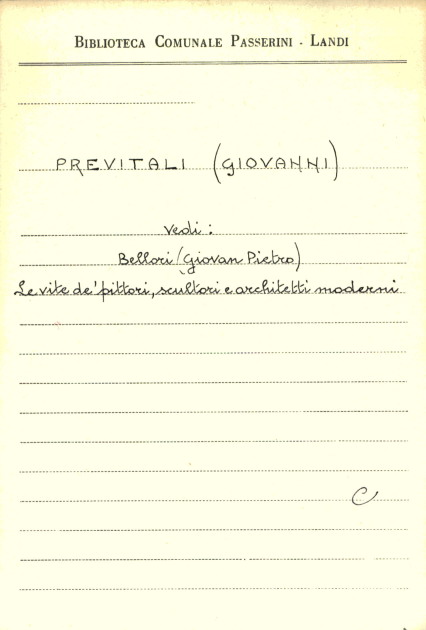 BIBLIOTECA COMUNALE PASSERINI - LANDI
PREVITALI (GIOVANNI)
Vedi:
Bellori (Giovan Pietro)
Le vite de' pittori, scultori e architetti moderni
C